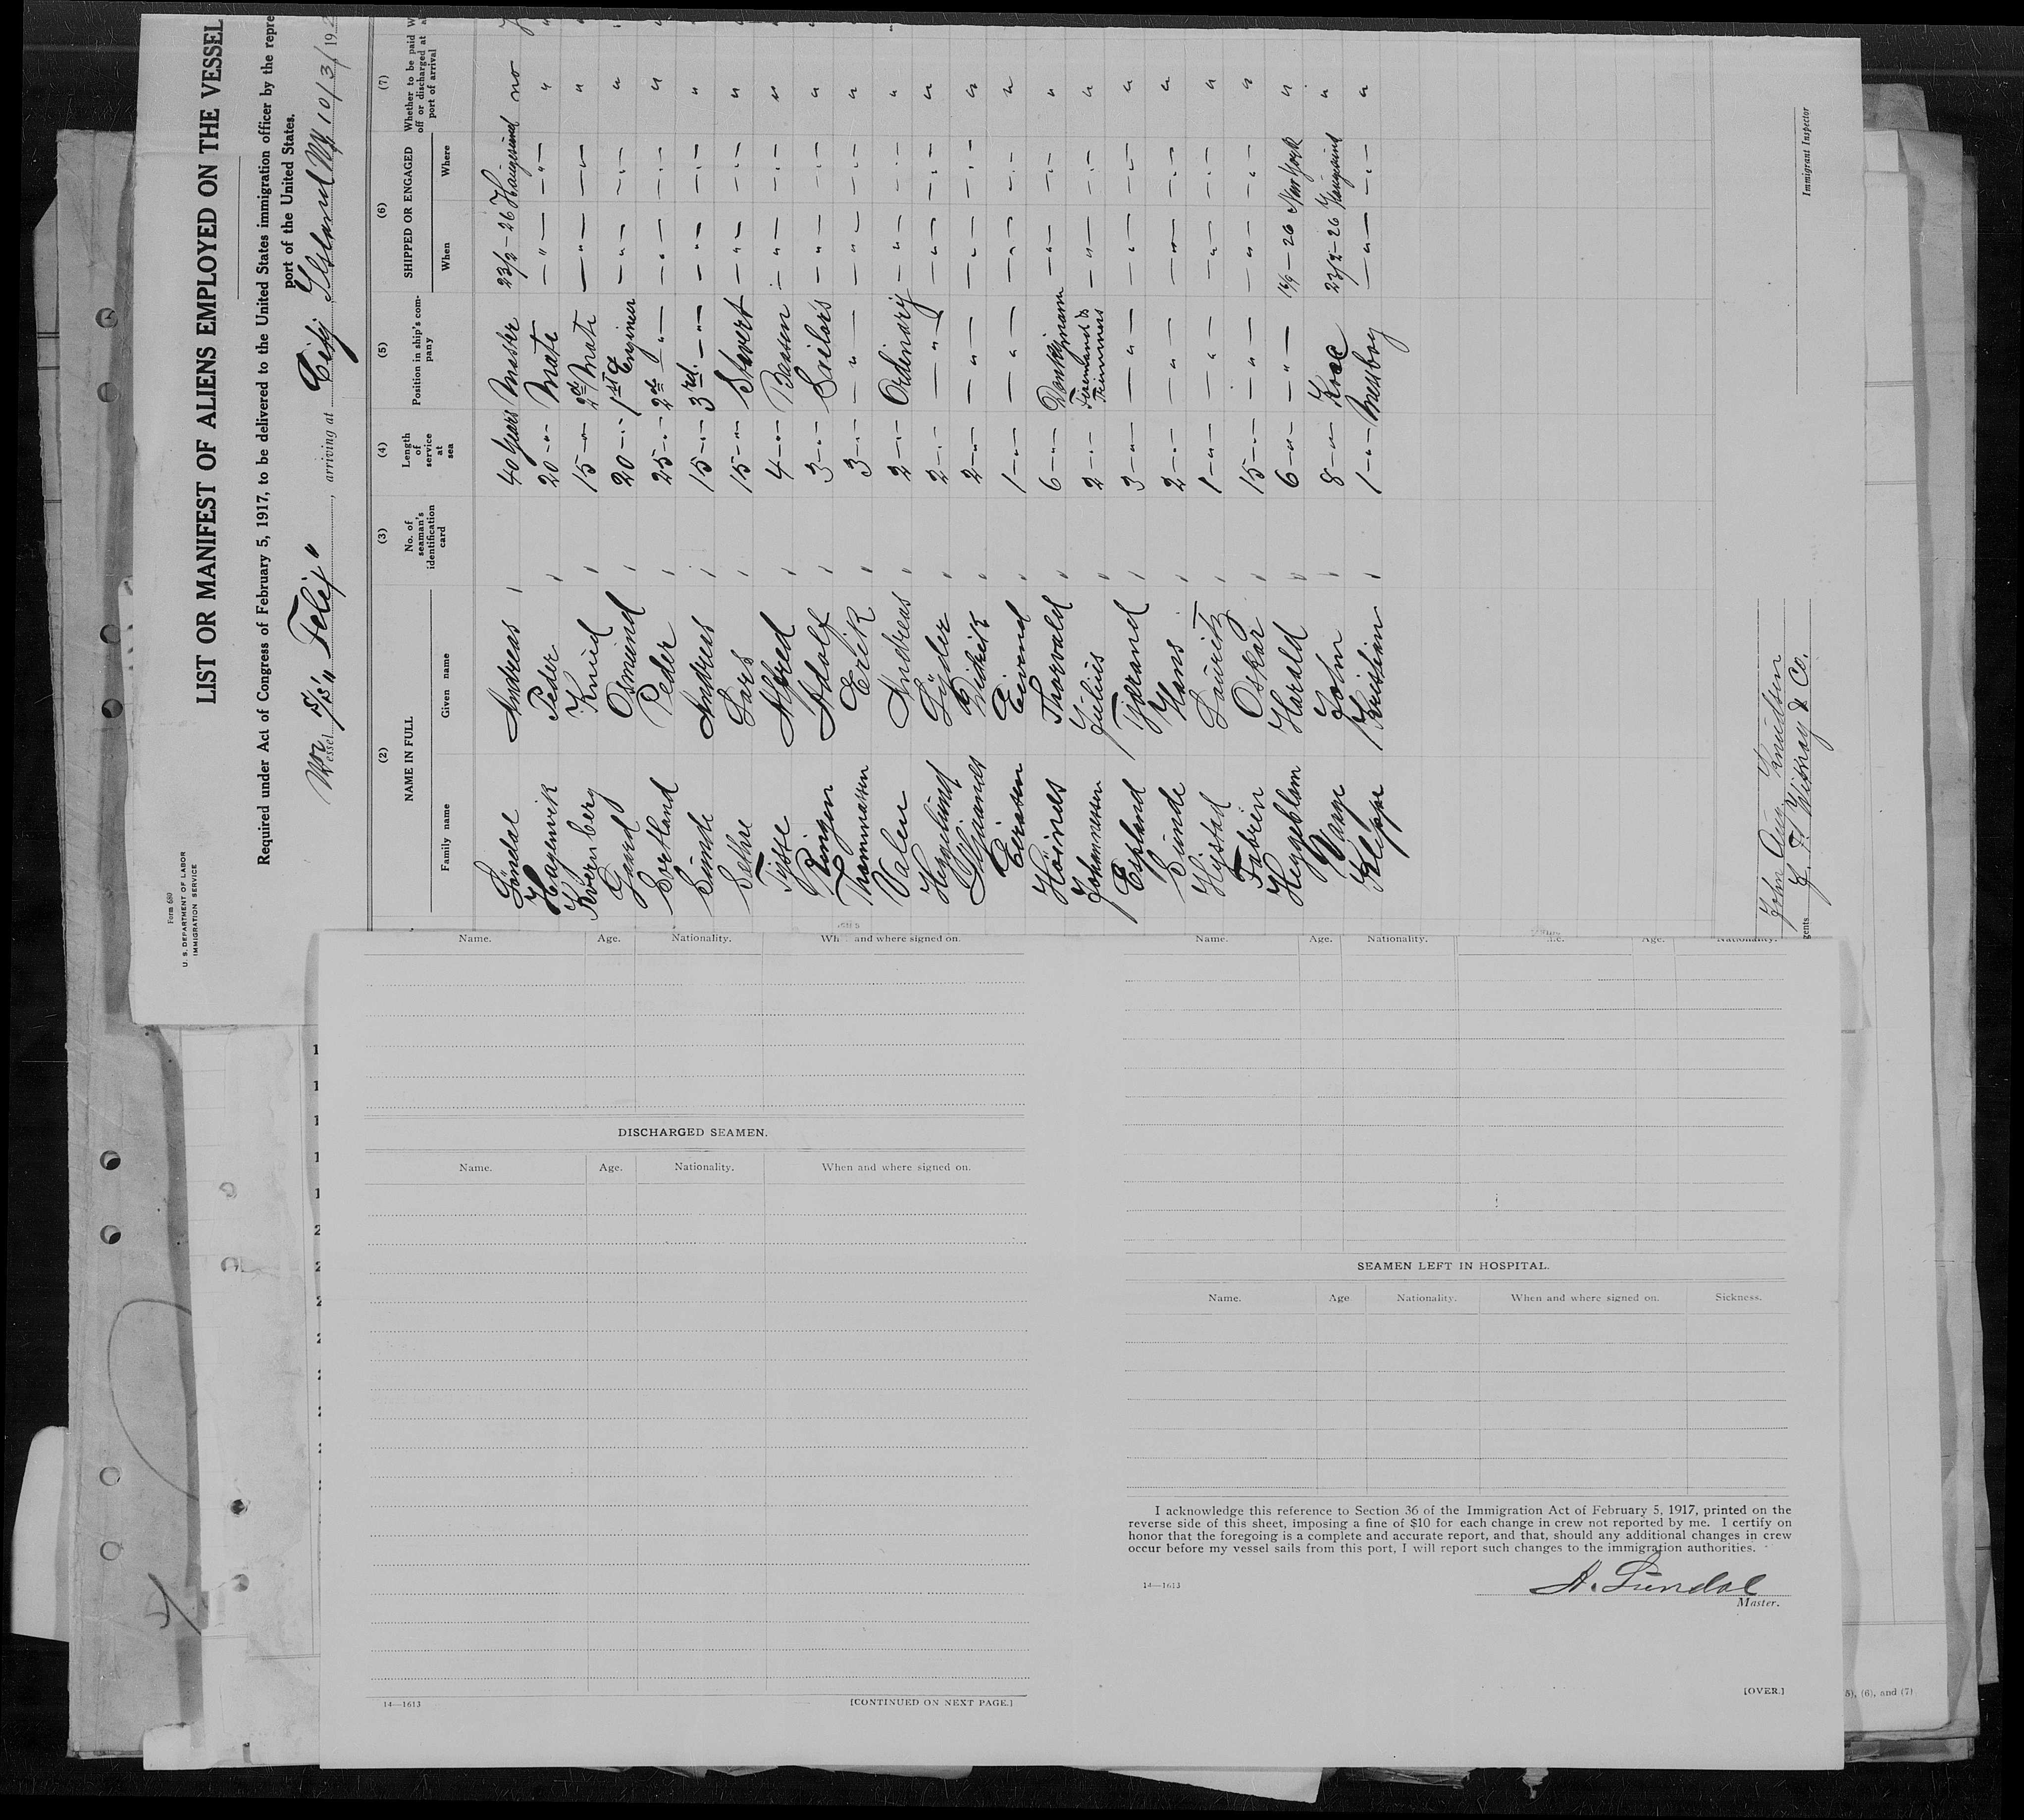 Form 680
U. S. DEPARTMENT OF LABOR
IMMIGRATION SERVICE
LIST OR MANIFEST OF ALIENS EMPLOYED ON THE VESSEL
Required under Act of Congress of February 5, 1917, to be delivered to the United States immigration officer by the repre
port of the United States.
Vessel Nor S/S "Felix", arriving at City Island NY 10/3/192
(2) (3) (4) (5) (6) (7)
NAME IN FULL
Family name Given name
No. of seaman's identification card
Length of service at sea
Position in ship's company
SHIPPED OR ENGAGED
When Where
Whether to be paid off or discharged at port of arrival
Andreas 40 years Master 23/2-26 Haugesund no
Hagenvik Peder 20 -"- Mate -"- -"- "
Kvernberg Knud 15 -"- 2nd Mate -"- -"- "
Osmund 20 -"- 1st Engineer -"- -"- "
Eortland Peder 25 -"- 2nd -"- -"- -"- "
Sunde Andreas 15 -"- 3rd -"- -"- -"- "
Sethre Lars 15 -"- Stevert -"- -"- "
Tysse Alfred 4 -"- Boatsen -"- -"- "
Ringen Adolf 3 -"- Sailors -"- -"- "
Thommassen Erik 3 -"- -"- -"- -"- "
Valen Andreas 2 -"- Ordinary -"- -"- "
Lyder 2 -"- -"- -"- -"- "
Didrik 2 -"- -"- -"- -"- "
Eivend 1 -"- -"- -"- -"- "
Höines Thorvald 6 -"- Donkeymann -"- -"- "
Johannessen Julius 2 -"- Firemand & Trimmers -"- -"- "
Espeland Tjorand 3 -"- -"- -"- -"- "
Sunde Hans 2 -"- -"- -"- -"- "
Hystad Lauritz 1 -"- -"- -"- -"- "
Oskar 15 -"- -"- -"- -"- "
Heggeblom Harald 6 -"- -"- -26 New York "
Vage John 8 -"- Kock 23/2-26 Haugesund "
Klippe Kristian 1 -"- Messboy -"- -"- "
John Aug Knudsen
gents
Immigrant Inspector
Name. Age. Nationality. Wh and where signed on.
DISCHARGED SEAMEN.
Name. Age. Nationality. When and where signed on.
14—1613 [CONTINUED ON NEXT PAGE.]
Name. Age. Nationality. Age. Nationality.
SEAMEN LEFT IN HOSPITAL.
Name. Age. Nationality. When and where signed on. Sickness.
I acknowledge this reference to Section 36 of the Immigration Act of February 5, 1917, printed on the
reverse side of this sheet, imposing a fine of $10 for each change in crew not reported by me. I certify on
honor that the foregoing is a complete and accurate report, and that, should any additional changes in crew
occur before my vessel sails from this port, I will report such changes to the immigration authorities.
14—1613
A. Lündal
Master.
[OVER.]
5), (6), and (7)